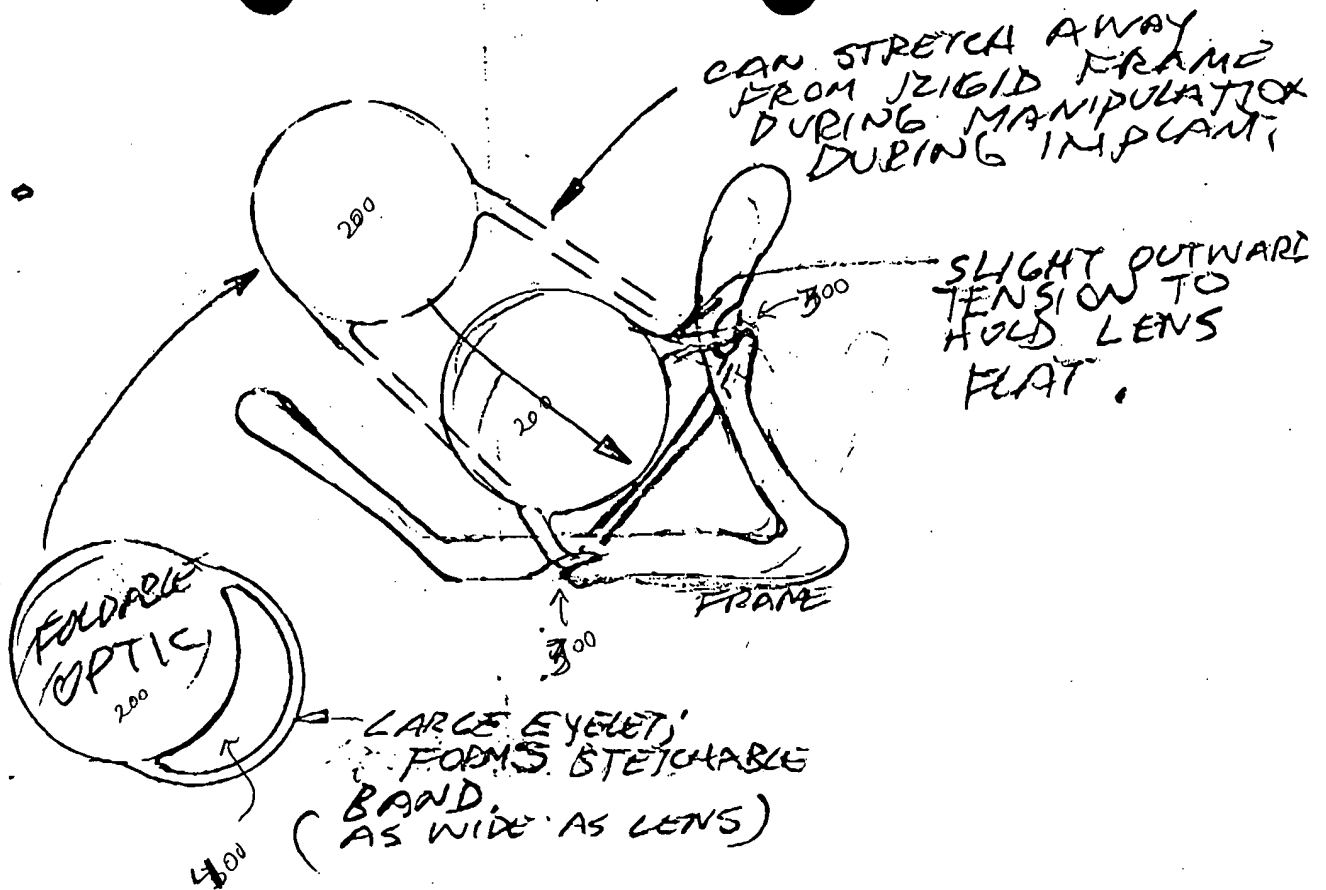 CAN STRETCH AWAY
FROM RIGID FRAME
DURING MANIPULATION
DURING IMPLANT,
200
SLIGHT OUTWARD
TENSION TO
HOLD LENS
FLAT.
300
200
FRAME
300
FOLDABLE
OPTIC
200
LARGE EYELET;
FORMS STETCHABLE
BAND.
(AS WIDE AS LENS)
400